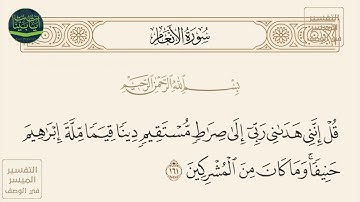 سُورَةُ الأَنْعَام
بِسْمِ اللَّهِ الرَّحْمَٰنِ الرَّحِيمِ
قُلْ إِنَّنِي هَدَىٰنِي رَبِّيٓ إِلَىٰ صِرَٰطٖ مُّسْتَقِيمٖ دِينٗا قِيَمٗا مِّلَّةَ إِبْرَٰهِيمَ
حَنِيفٗاۚ وَمَا كَانَ مِنَ ٱلْمُشْرِكِينَ ١٦١
التفسير
الميسر
في الوصف